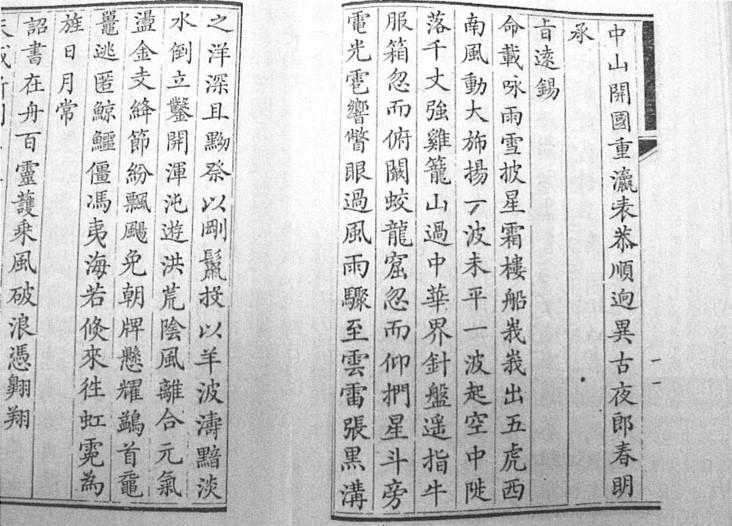 中山開國重瀛表恭順逈異古夜郎春明
承
㫖遠錫
命載咏雨雪披星霜樓船峩峩出五虎西
南風動大斾揚一波未平一波起空中陡
落千丈強雞籠山過中華界針盤遥指牛
服箱忽而俯闞蛟龍窟忽而仰捫星斗旁
電光雹響瞥眼過風雨驟至雲雷張黑溝
之洋深且黝祭以剛鬣投以羊波濤黯淡
水倒立鑿開渾沌遊洪荒陰風離合元氣
盪金支絳節紛飄颺免朝牌懸耀鷁首黿
鼉逃匿鯨鱷僵馮夷海若倐來徃虹霓為
旌日月常
詔書在舟百靈護乘風破浪憑翺翔